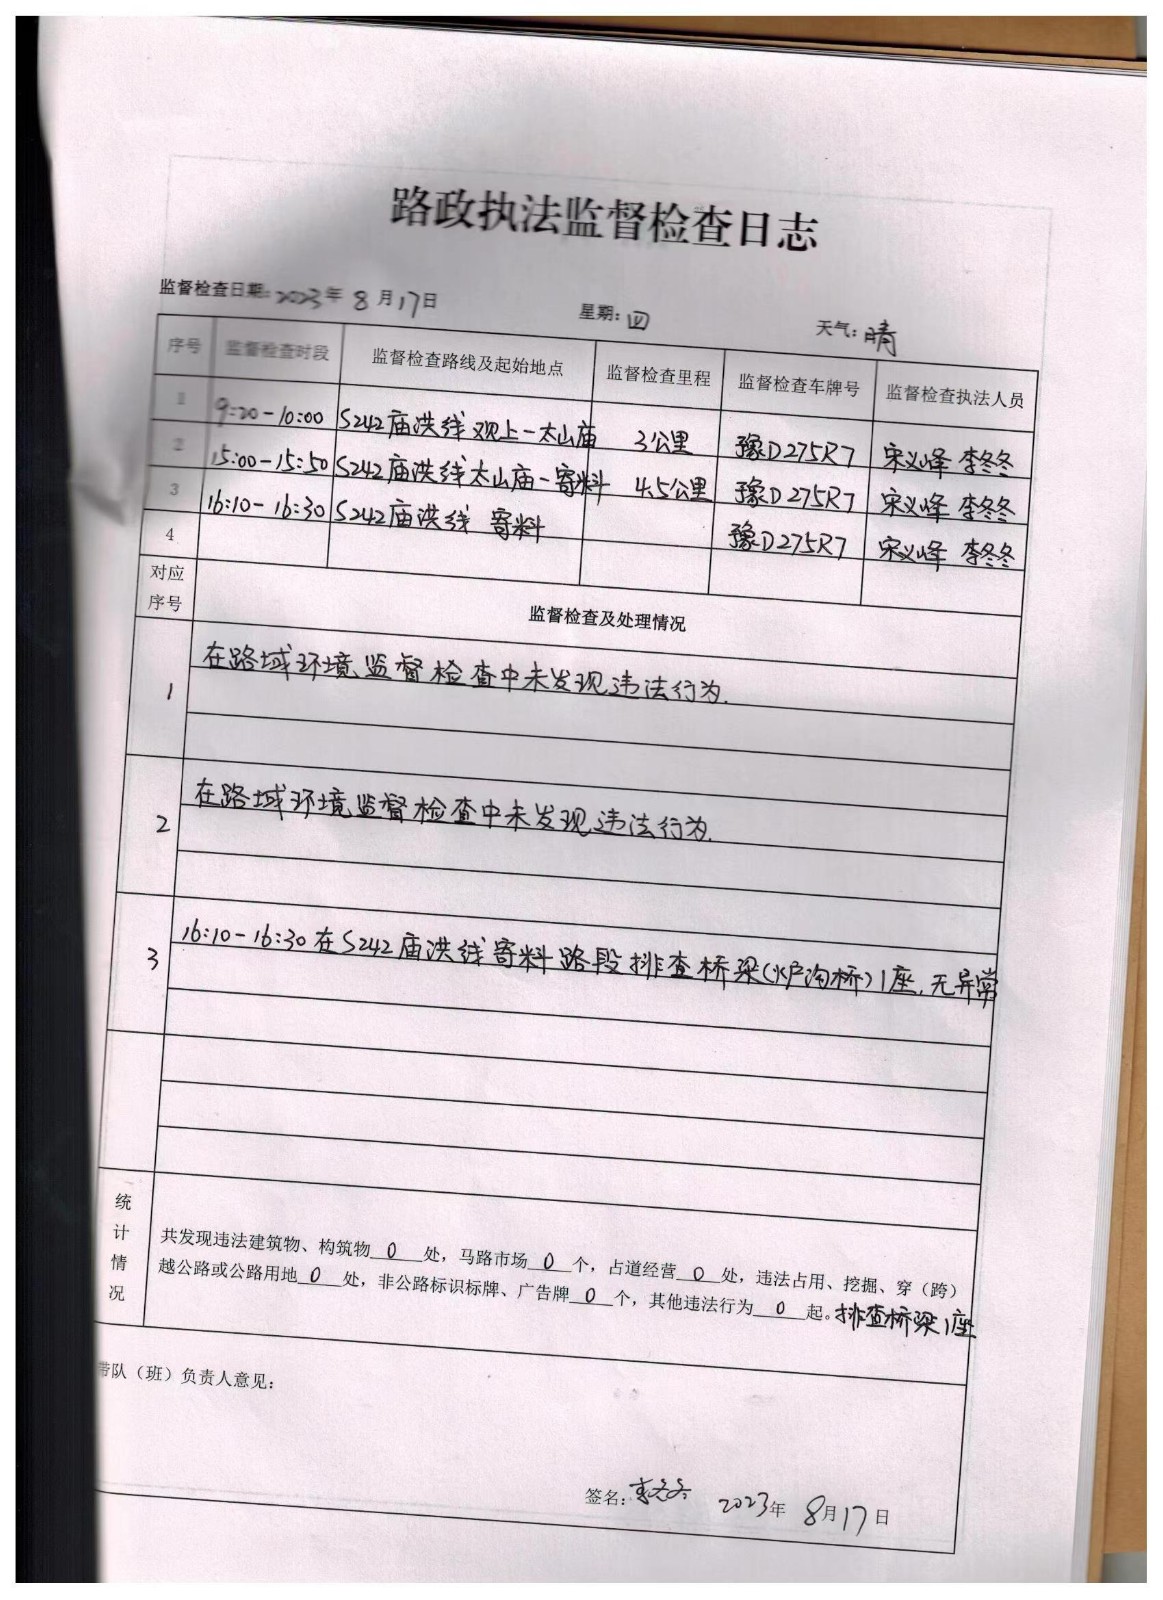 路政执法监督检查日志
监督检查日期:2023年 8月17日 星期:四 天气:晴
序号 监督检查时段 监督检查路线及起始地点 监督检查里程 监督检查车牌号 监督检查执法人员
1 9:20-10:00 S242庙洪线观上-太山庙 3公里 豫D275R7 宋义峰 李冬冬
2 15:00-15:50 S242庙洪线太山庙-寄料 4.5公里 豫D275R7 宋义峰 李冬冬
3 16:10-16:30 S242庙洪线 寄料 豫D275R7 宋义峰 李冬冬
4
对应
序号 监督检查及处理情况
1 在路域环境监督检查中未发现违法行为.
2 在路域环境监督检查中未发现违法行为.
3 16:10-16:30在S242庙洪线寄料路段排查桥梁(炉沟桥)1座.无异常
统
计
情
况
共发现违法建筑物、构筑物 0 处，马路市场 0 个，占道经营 0 处，违法占用、挖掘、穿（跨）
越公路或公路用地 0 处，非公路标识标牌、广告牌 0 个，其他违法行为 0 起。排查桥梁1座
带队（班）负责人意见:
签名:李冬冬 2023年 8月17日